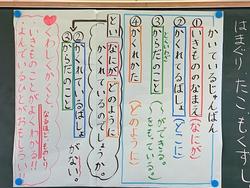 はまぐり たこ もくず
かいているじゅんばん
①いきもののなまえ(なにが)
②かくれているばしょ(どこに)
③からだのこと
④かくれかた(どのように)
といなにが、どのように
かくれているのでしょうか。
②かくれているばしょ
③からだのこと
がない。
くわしくかくと、
いきもののことがよくわかる!!
よんでいるひとがおもしろい!!